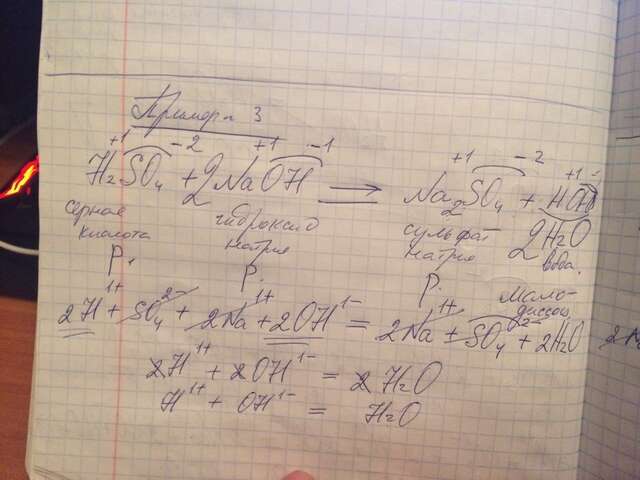 Пример 3
+1 -2 +1 -1 +1 -2 +1 -
H₂SO₄ + 2NaOH → Na₂SO₄ + HOH
серная кислота гидроксид натрия сульфат натрия 2H₂O вода.
р. р. р. мало-диссоц.
2H¹⁺ + SO₄²⁻ + 2Na¹⁺ + 2OH¹⁻ = 2Na¹⁺ + SO₄²⁻ + 2H₂O
2H¹⁺ + 2OH¹⁻ = 2H₂O
H¹⁺ + OH¹⁻ = H₂O